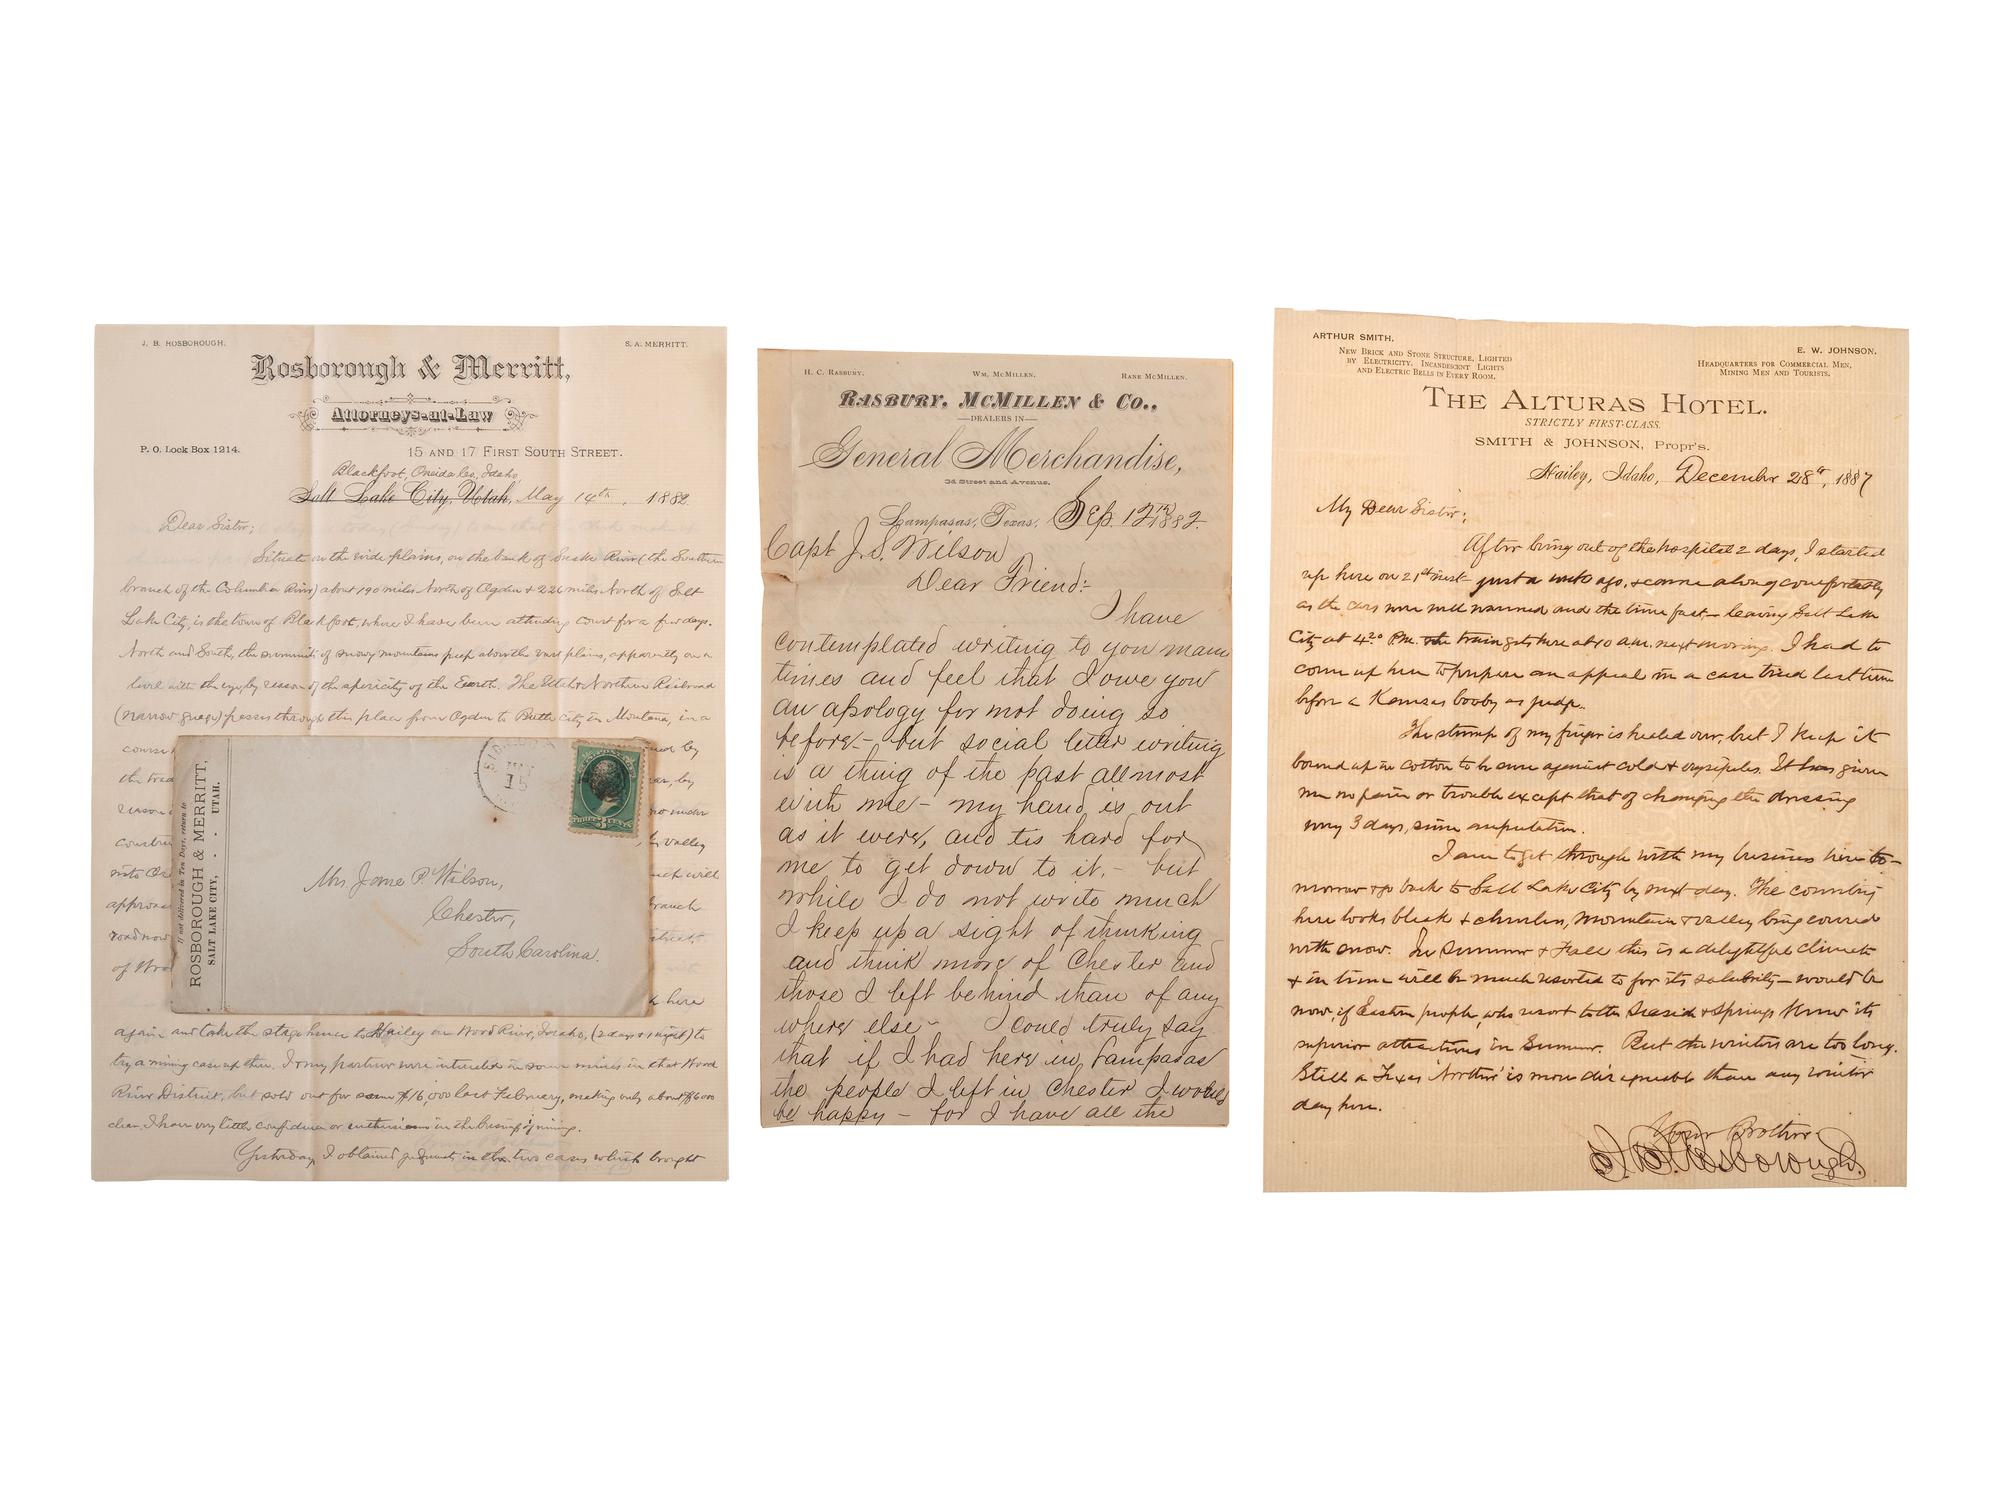 J. B. ROSBOROUGH. S. A. MERRITT.
Rosborough & Merritt,
Attorneys-at-Law
P. O. Lock Box 1214. 15 AND 17 FIRST SOUTH STREET.
Blackfoot, Oneida Co, Idaho,
Salt Lake City, Utah, May 14th, 1882.
Dear Sister;
Situate on the wide plains, on the bank of Snake River (the Southern
branch of the Columbia River) about 190 miles North of Ogden & 226 miles North of Salt
Lake City, is the town of Blackfoot, where I have been attending court for a few days.
North and South, the summits of snowy mountains peep above the vast plains, apparently on a
level with the eye, by reason of the sphericity of the Earth. The Utah & Northern Railroad
(narrow guage) passes through this place from Ogden to Butte City in Montana, in a
course by
the by
reason no under
constru valley
into will
approac branch
road now
of Wood
here
again and take the stage hence to Hailey on Wood River, Idaho, (2 days & 1 night) to
try a mining case up there. I & my partner were interested in some mines in that Wood
River District, but sold out for some $16,000 last February, making only about $6000
clear. I have very little confidence or enthusiasm in the business of mining.
Yesterday, I obtained judgments in the two cases which brought
If not delivered in Ten Days, return to
ROSBOROUGH & MERRITT,
SALT LAKE CITY, - - UTAH.
15
THREE CENTS
Mrs Jane P. Wilson,
Chester,
South Carolina.
H. C. RASBURY. WM. MCMILLEN. RANE MCMILLEN.
RASBURY, MCMILLEN & CO.,
DEALERS IN
General Merchandise,
3d Street and Avenue.
Lampasas, Texas, Sep. 12th 1882.
Capt J. S. Wilson
Dear Friend:-
I have
contemplated writing to you many
times and feel that I owe you
an apology for not doing so
before - but social letter writing
is a thing of the past allmost
with me - my hand is out
as it were, and tis hard for
me to get down to it. - but
while I do not write much
I keep up a sight of thinking
and think more of Chester and
those I left behind than of any
where else - I could truly say
that if I had here in Lampasas
the people I left in Chester I would
be happy - for I have all the
ARTHUR SMITH. E. W. JOHNSON.
NEW BRICK AND STONE STRUCTURE, LIGHTED
BY ELECTRICITY, INCANDESCENT LIGHTS
AND ELECTRIC BELLS IN EVERY ROOM.
HEADQUARTERS FOR COMMERCIAL MEN,
MINING MEN AND TOURISTS.
THE ALTURAS HOTEL.
STRICTLY FIRST-CLASS.
SMITH & JOHNSON, Propr's.
Hailey, Idaho, December 28th, 1887
My Dear Sister;
After being out of the hospital 2 days, I started
up here on 21st inst - just a week ago, & came along comfortably
as the cars were well warmed and the time fast - leaving Salt Lake
City at 4.20 P.M. the train gets here at 10 a.m. next morning. I had to
come up here to prepare an appeal in a case tried last term
before a Kansas booby as judge.
The stump of my finger is healed over, but I keep it
bound up in cotton to be sure against cold & erysipelas. It has given
me no pain or trouble except that of changing the dressing
every 3 days, since amputation.
I am to get through with my business here to-
morrow & go back to Salt Lake City by next day. The country
here looks bleak & cheerless, mountain & valley being covered
with snow. In Summer & Fall this is a delightful climate
& in time will be much resorted to for its salubrity - would be
now, if Eastern people, who resort to the Seaside & Springs knew its
superior attractions in Summer. But the winters are too long.
Still a Texas 'Norther' is more disagreeable than any winter
day here.
Your Brother
J. B. Rosborough.